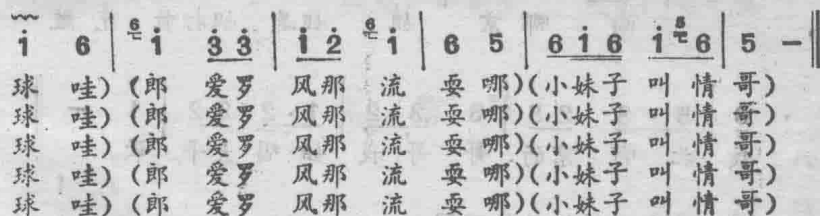 i 6 | 6 i 3 3 | i 2 6 i | 6 5 | 6 i 6 i 5 6 | 5 — ‖
球 哇) (郎 爱罗 风那 流 耍 哪)(小妹子 叫 情 哥)
球 哇) (郎 爱罗 风那 流 耍 哪)(小妹子 叫 情 哥)
球 哇) (郎 爱罗 风那 流 耍 哪)(小妹子 叫 情 哥)
球 哇) (郎 爱罗 风那 流 耍 哪)(小妹子 叫 情 哥)
球 哇) (郎 爱罗 风那 流 耍 哪)(小妹子 叫 情 哥)